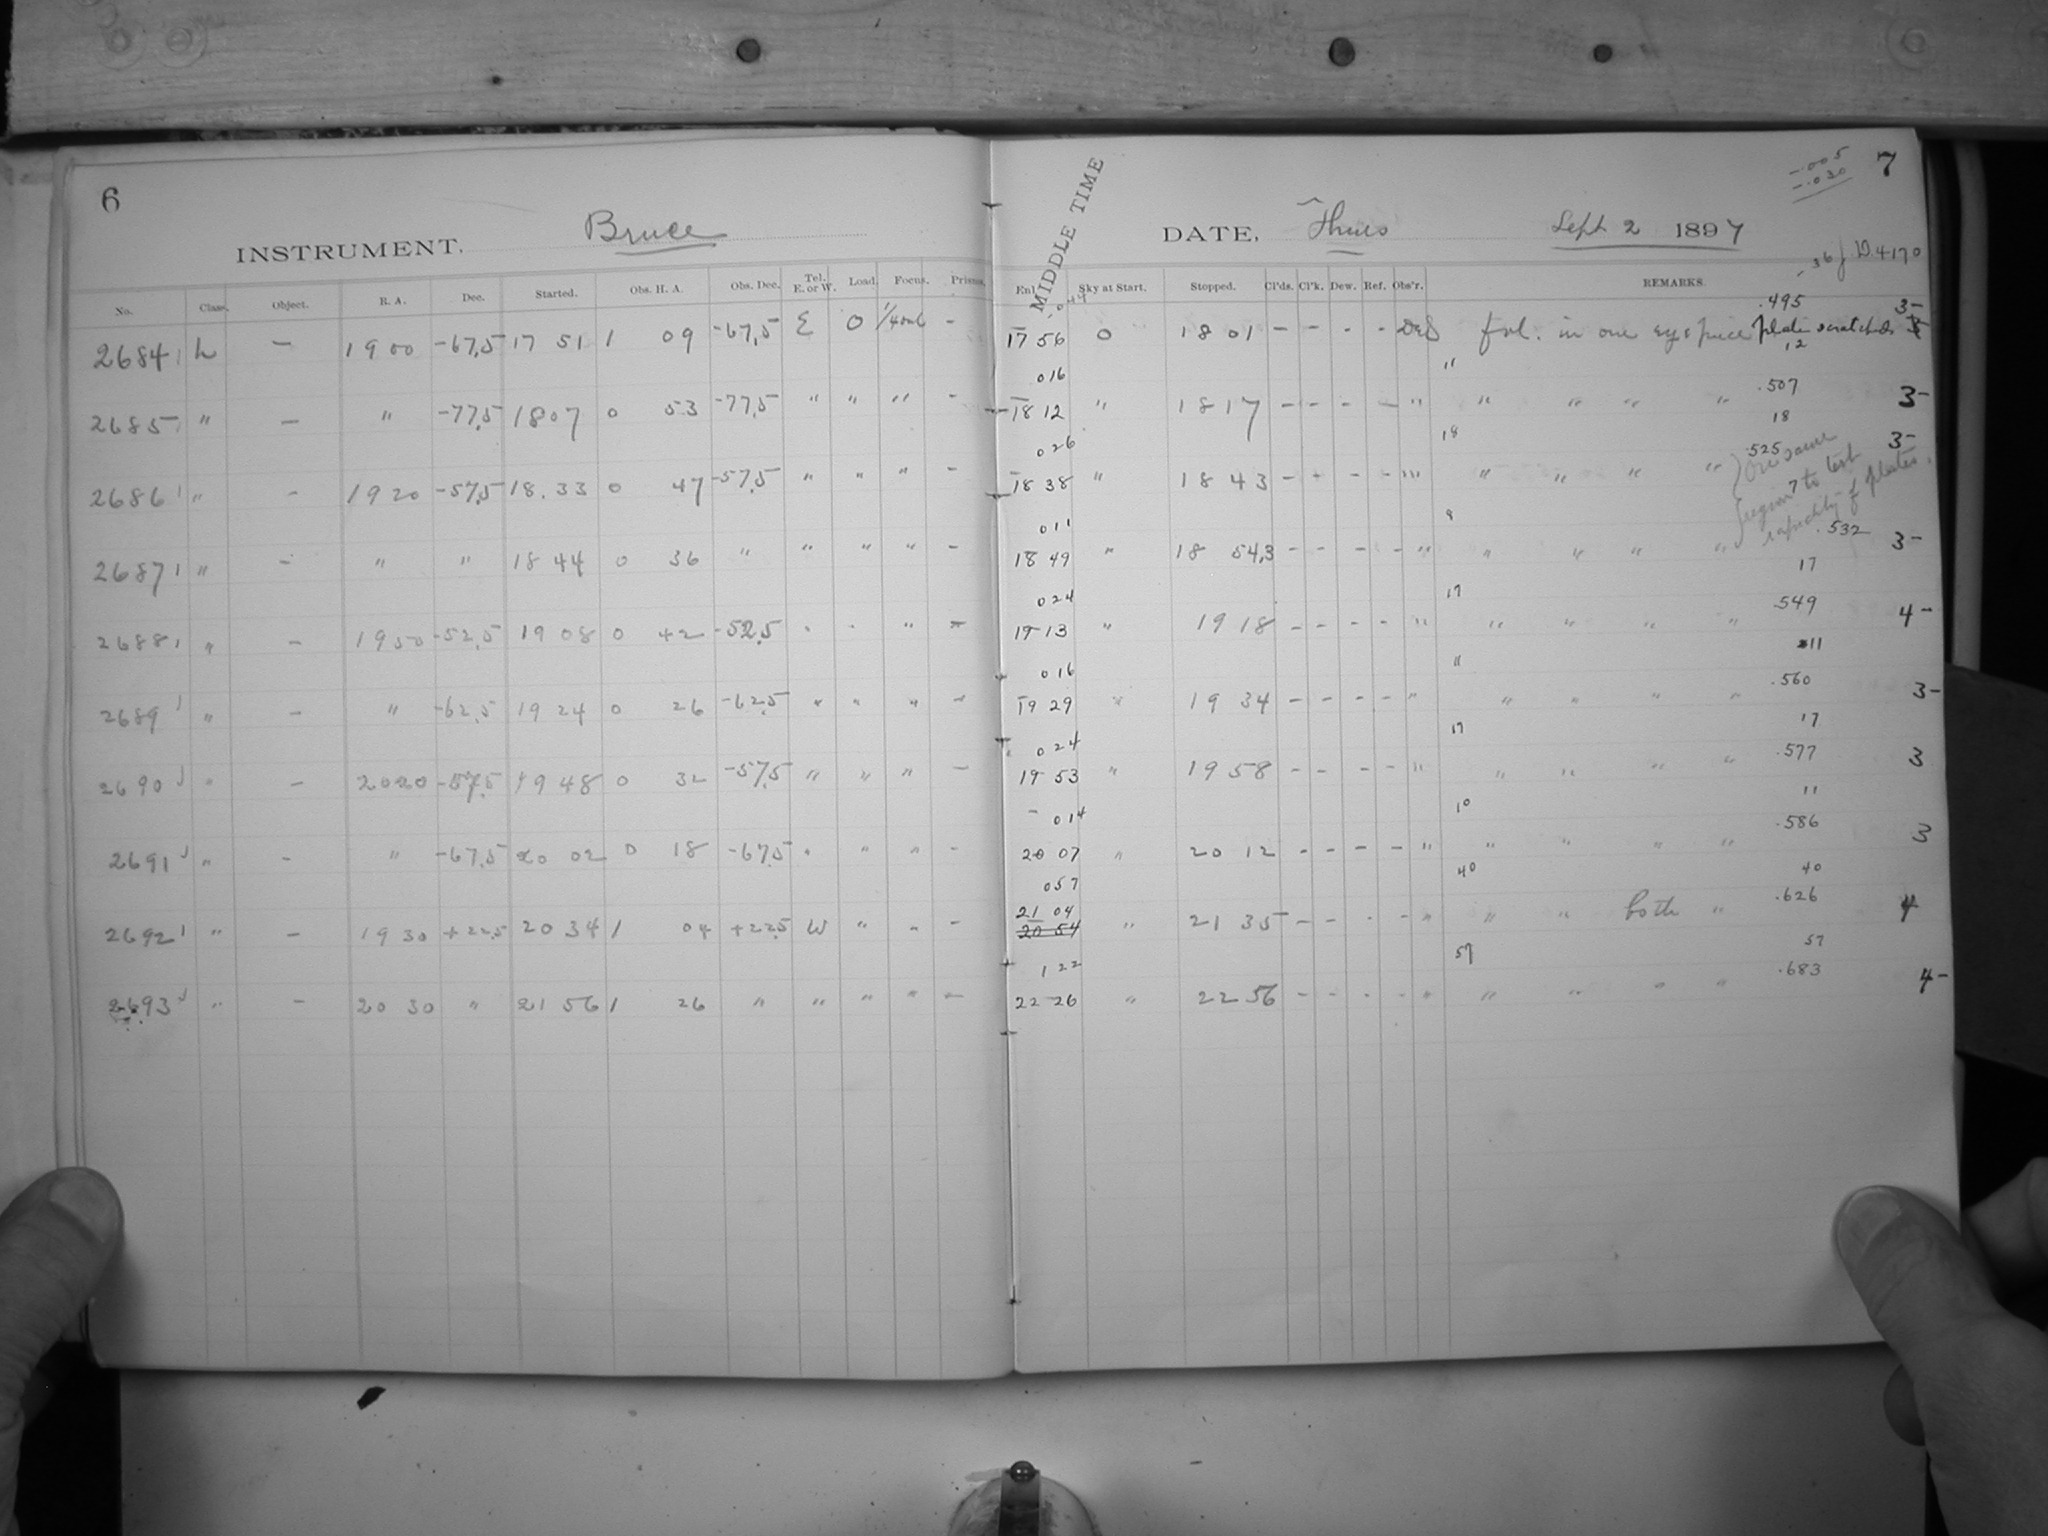 6
INSTRUMENT. Bruce
No. Class. Object. R. A. Dec. Started. Obs. H. A. Obs. Dec. Tel. E. or W. Load. Focus. Prisms.
2684 L — 19 00 -67.5 17 51 1 09 -67.5 E 0 —
2685 " — " -77.5 18 07 0 53 -77.5 " " " —
2686 " — 19 20 -57.5 18.33 0 47 -57.5 " " " —
2687 " — " " 18 44 0 36 " " " " —
2688 " — 19 50 -52.5 19 08 0 42 -52.5 " " " —
2689 " — " -62.5 19 24 0 26 -62.5 " " " —
2690 " — 20 20 -57.5 19 48 0 32 -57.5 " " " —
2691 " — " -67.5 20 02 0 18 -67.5 " " " —
2692 " — 19 30 +22.5 20 34 1 04 +22.5 W " " —
2693 " — 20 30 " 21 56 1 26 " " " " —
MIDDLE TIME
7
-.005
-.030
DATE, Thurs Sept 2 1897
Sky at Start. Stopped. Cl'ds. Cl'k. Dew. Ref. Obs'r. REMARKS.
.495 3-
17 56 0 18 01 — — — — fol. in one eyepiece plate scratched
12
016 11 .507
18 12 " 18 17 — — — — " " " " " 3-
18
026 18 .525 3-
18 38 " 18 43 — — — — " " " " " On same region to test rapidity of plates.
011 8 7 .532
18 49 " 18 54.3 — — — — " " " " " 3-
17
024 17 .549
19 13 " 19 18 — — — — " " " " " 4-
11
016 11 .560
19 29 " 19 34 — — — — " " " " " 3-
17
024 17 .577
19 53 " 19 58 — — — — " " " " " 3
11
014 10 .586
20 07 " 20 12 — — — — " " " " " 3
40
057 40 .626
21 04
20 54 " 21 35 — — — — " " " both " 4
57
122 57 .683
22 26 " 22 56 — — — — " " " " " 4-